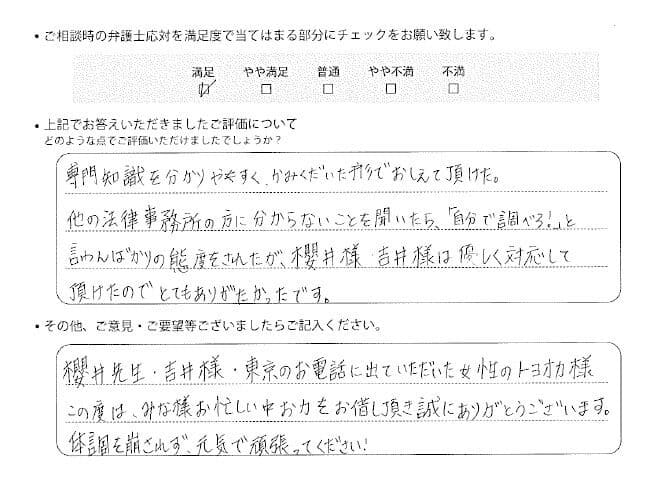 ・ご相談時の弁護士応対を満足度で当てはまる部分にチェックをお願い致します。
満足 やや満足 普通 やや不満 不満
・上記でお答えいただきましたご評価について
どのような点でご評価いただけましたでしょうか？
専門知識を分かりやすく、かみくだいた形でおしえて頂けた。
他の法律事務所の方に分からないことを聞いたら、「自分で調べろ！」と
言わんばかりの態度をされたが、櫻井様・吉井様は優しく対応して
頂けたのでとてもありがたかったです。
・その他、ご意見・ご要望等ございましたらご記入ください。
櫻井先生・吉井様・東京のお電話に出ていただいた女性のトヨオカ様
この度は、みな様お忙しい中お力をお借し頂き誠にありがとうございます。
体調を崩されず、元気で頑張ってください！